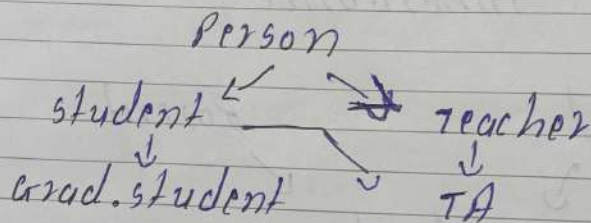 Person
student Teacher
Grad.student TA